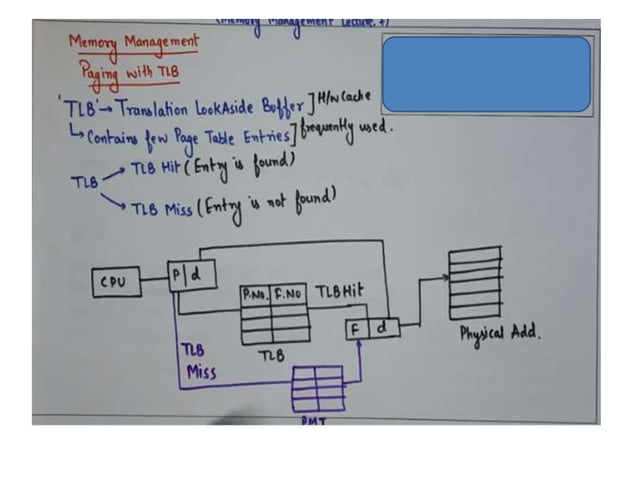 (Memory Management Lecture. 7)
Memory Management
Paging with TLB
'TLB' → Translation LookAside Buffer] H/w Cache
↳ Contains few Page Table Entries] frequently used.
TLB → TLB Hit (Entry is found)
→ TLB Miss (Entry is not found)
CPU
P | d
P.No. F.No
TLB Hit
F d
TLB
Physical Add.
TLB
Miss
PMT